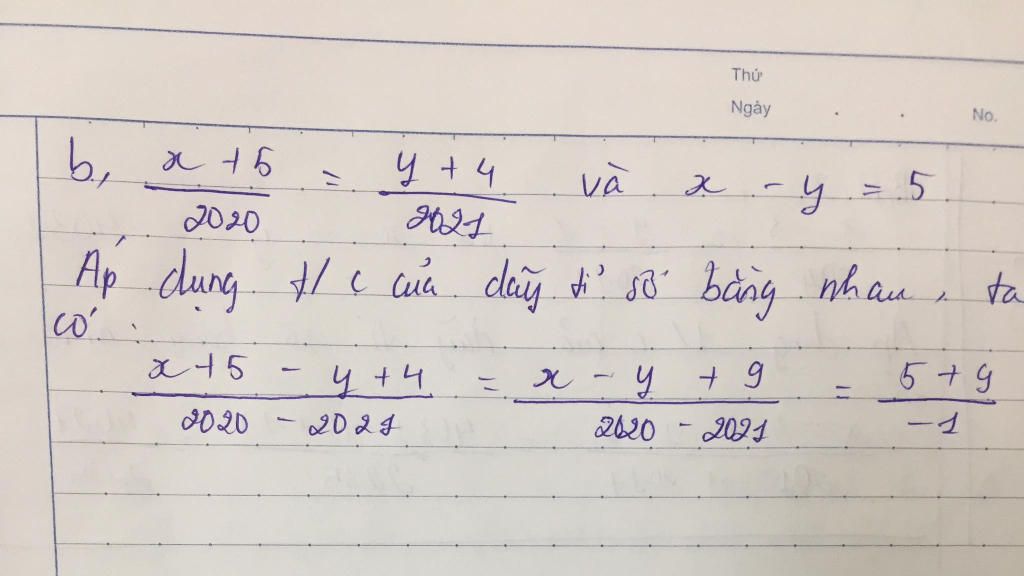 Thứ
Ngày . . No.
b, x + 5 / 2020 = y + 4 / 2021 và x - y = 5
Áp dụng t/c của dãy tỉ số bằng nhau, ta
có :
x + 5 - y + 4 / 2020 - 2021 = x - y + 9 / 2020 - 2021 = 5 + 9 / -1